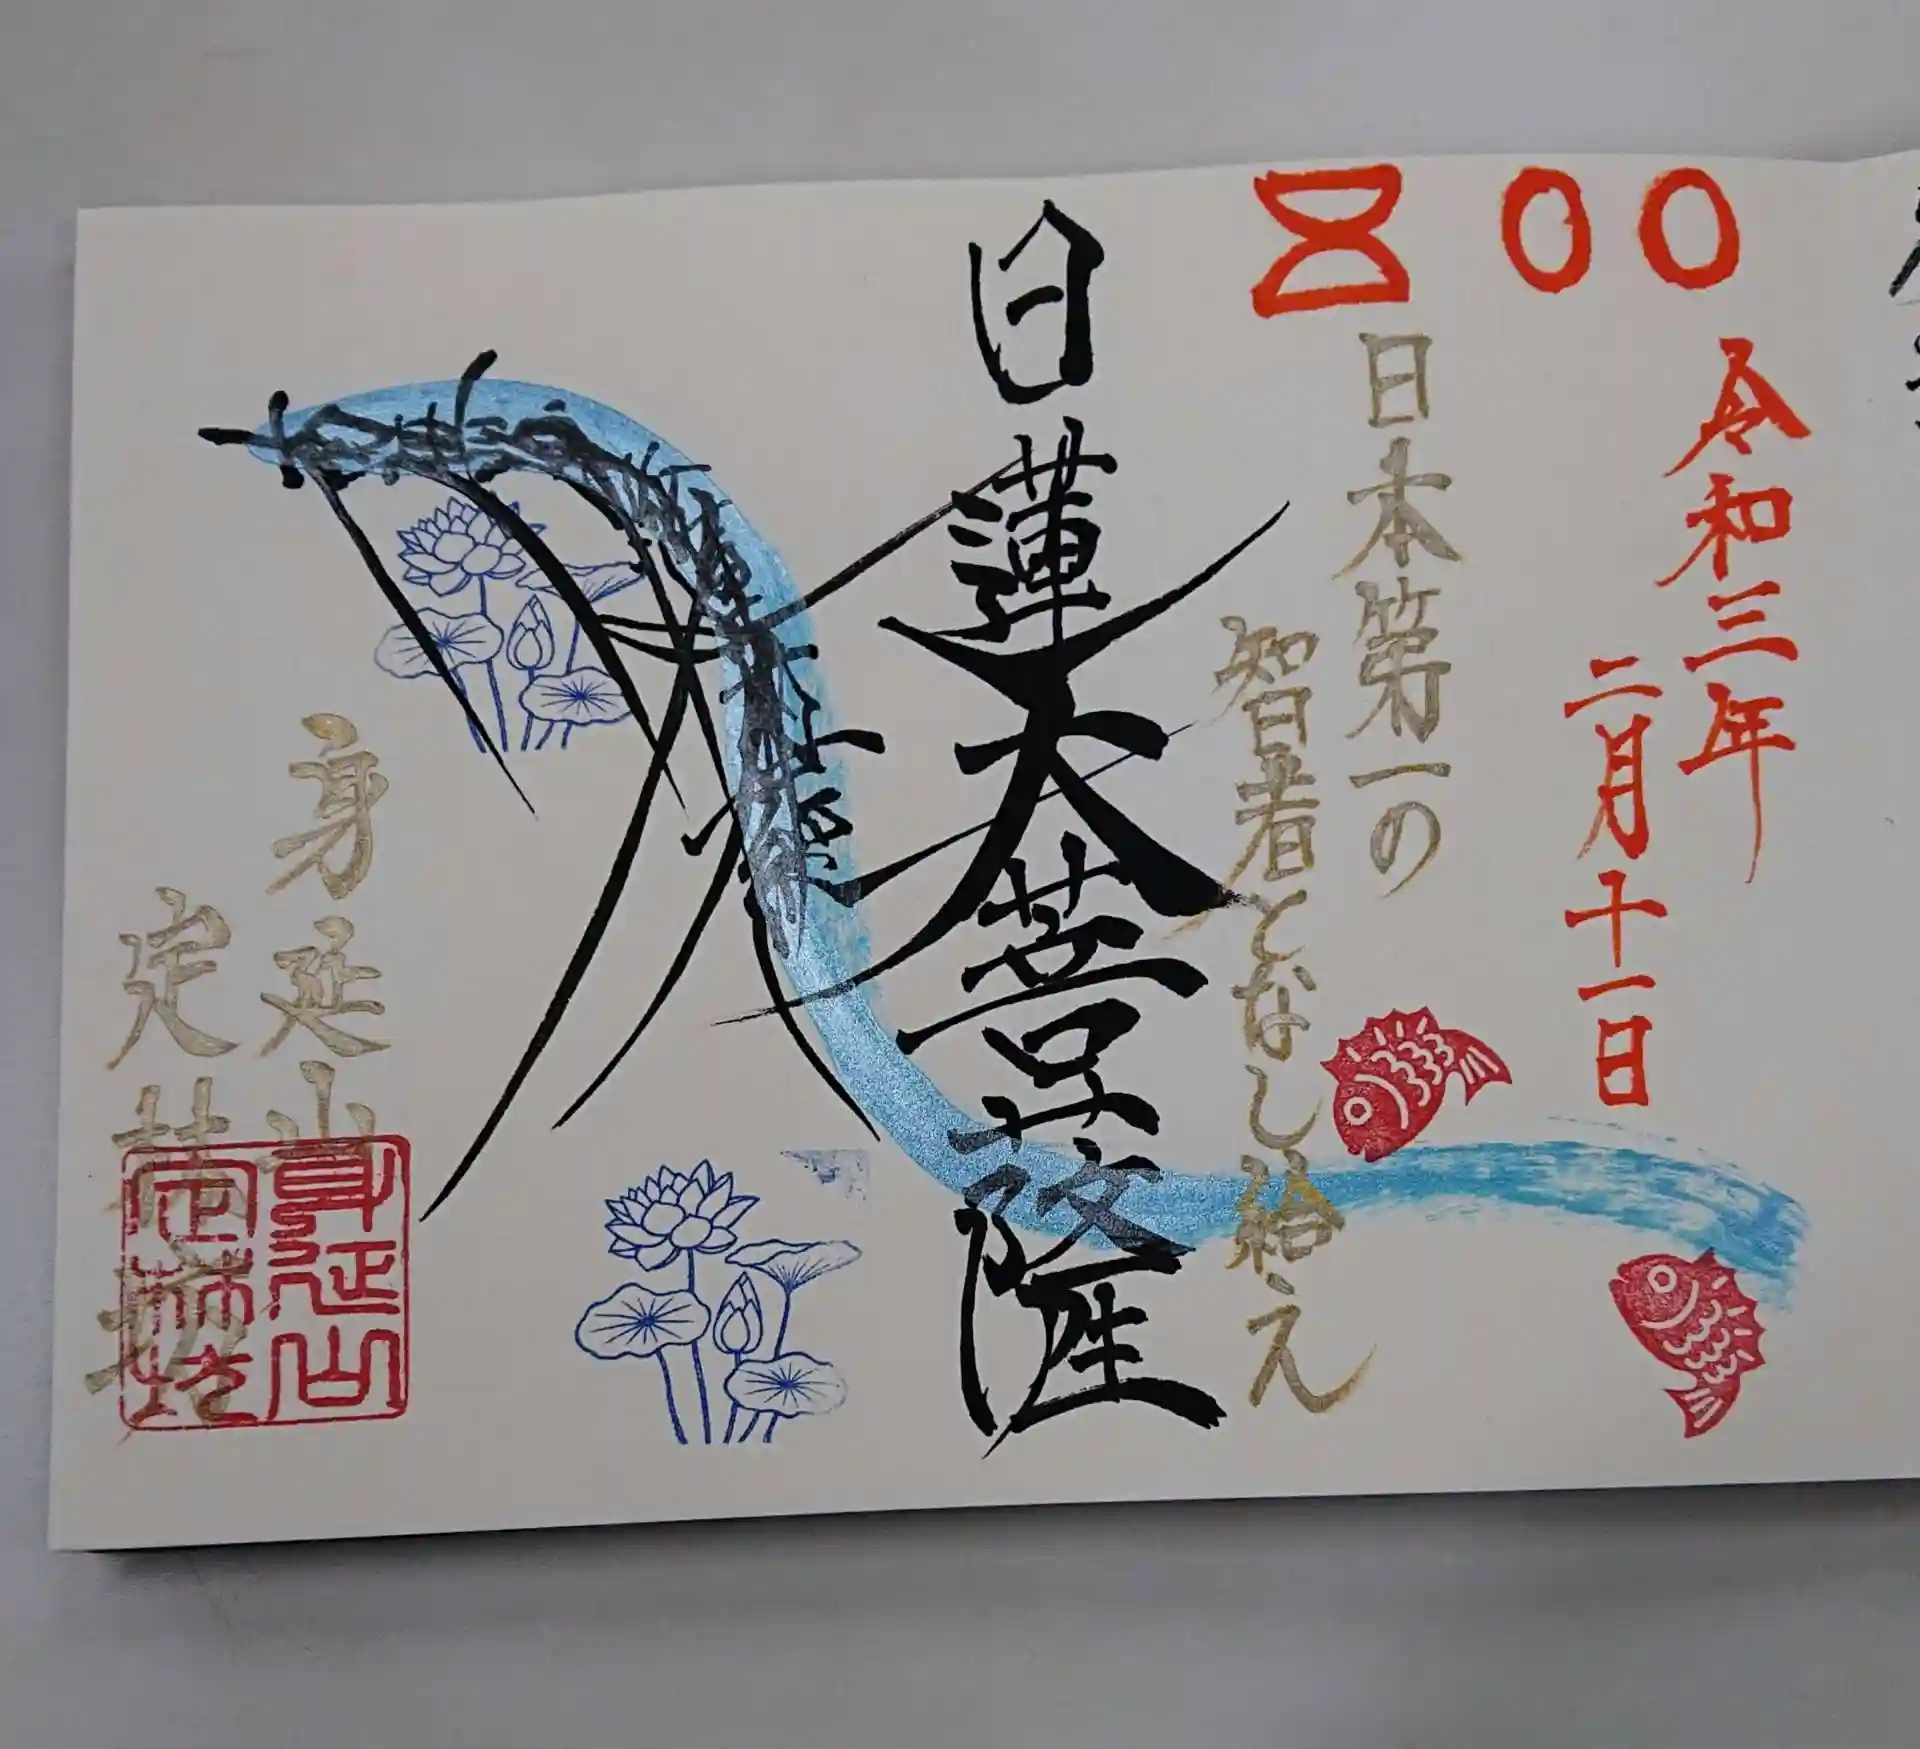 令和三年
二月十一日
日本第一の
智者となし給え
日蓮大菩薩
身延山
定林坊
身延山
定林坊